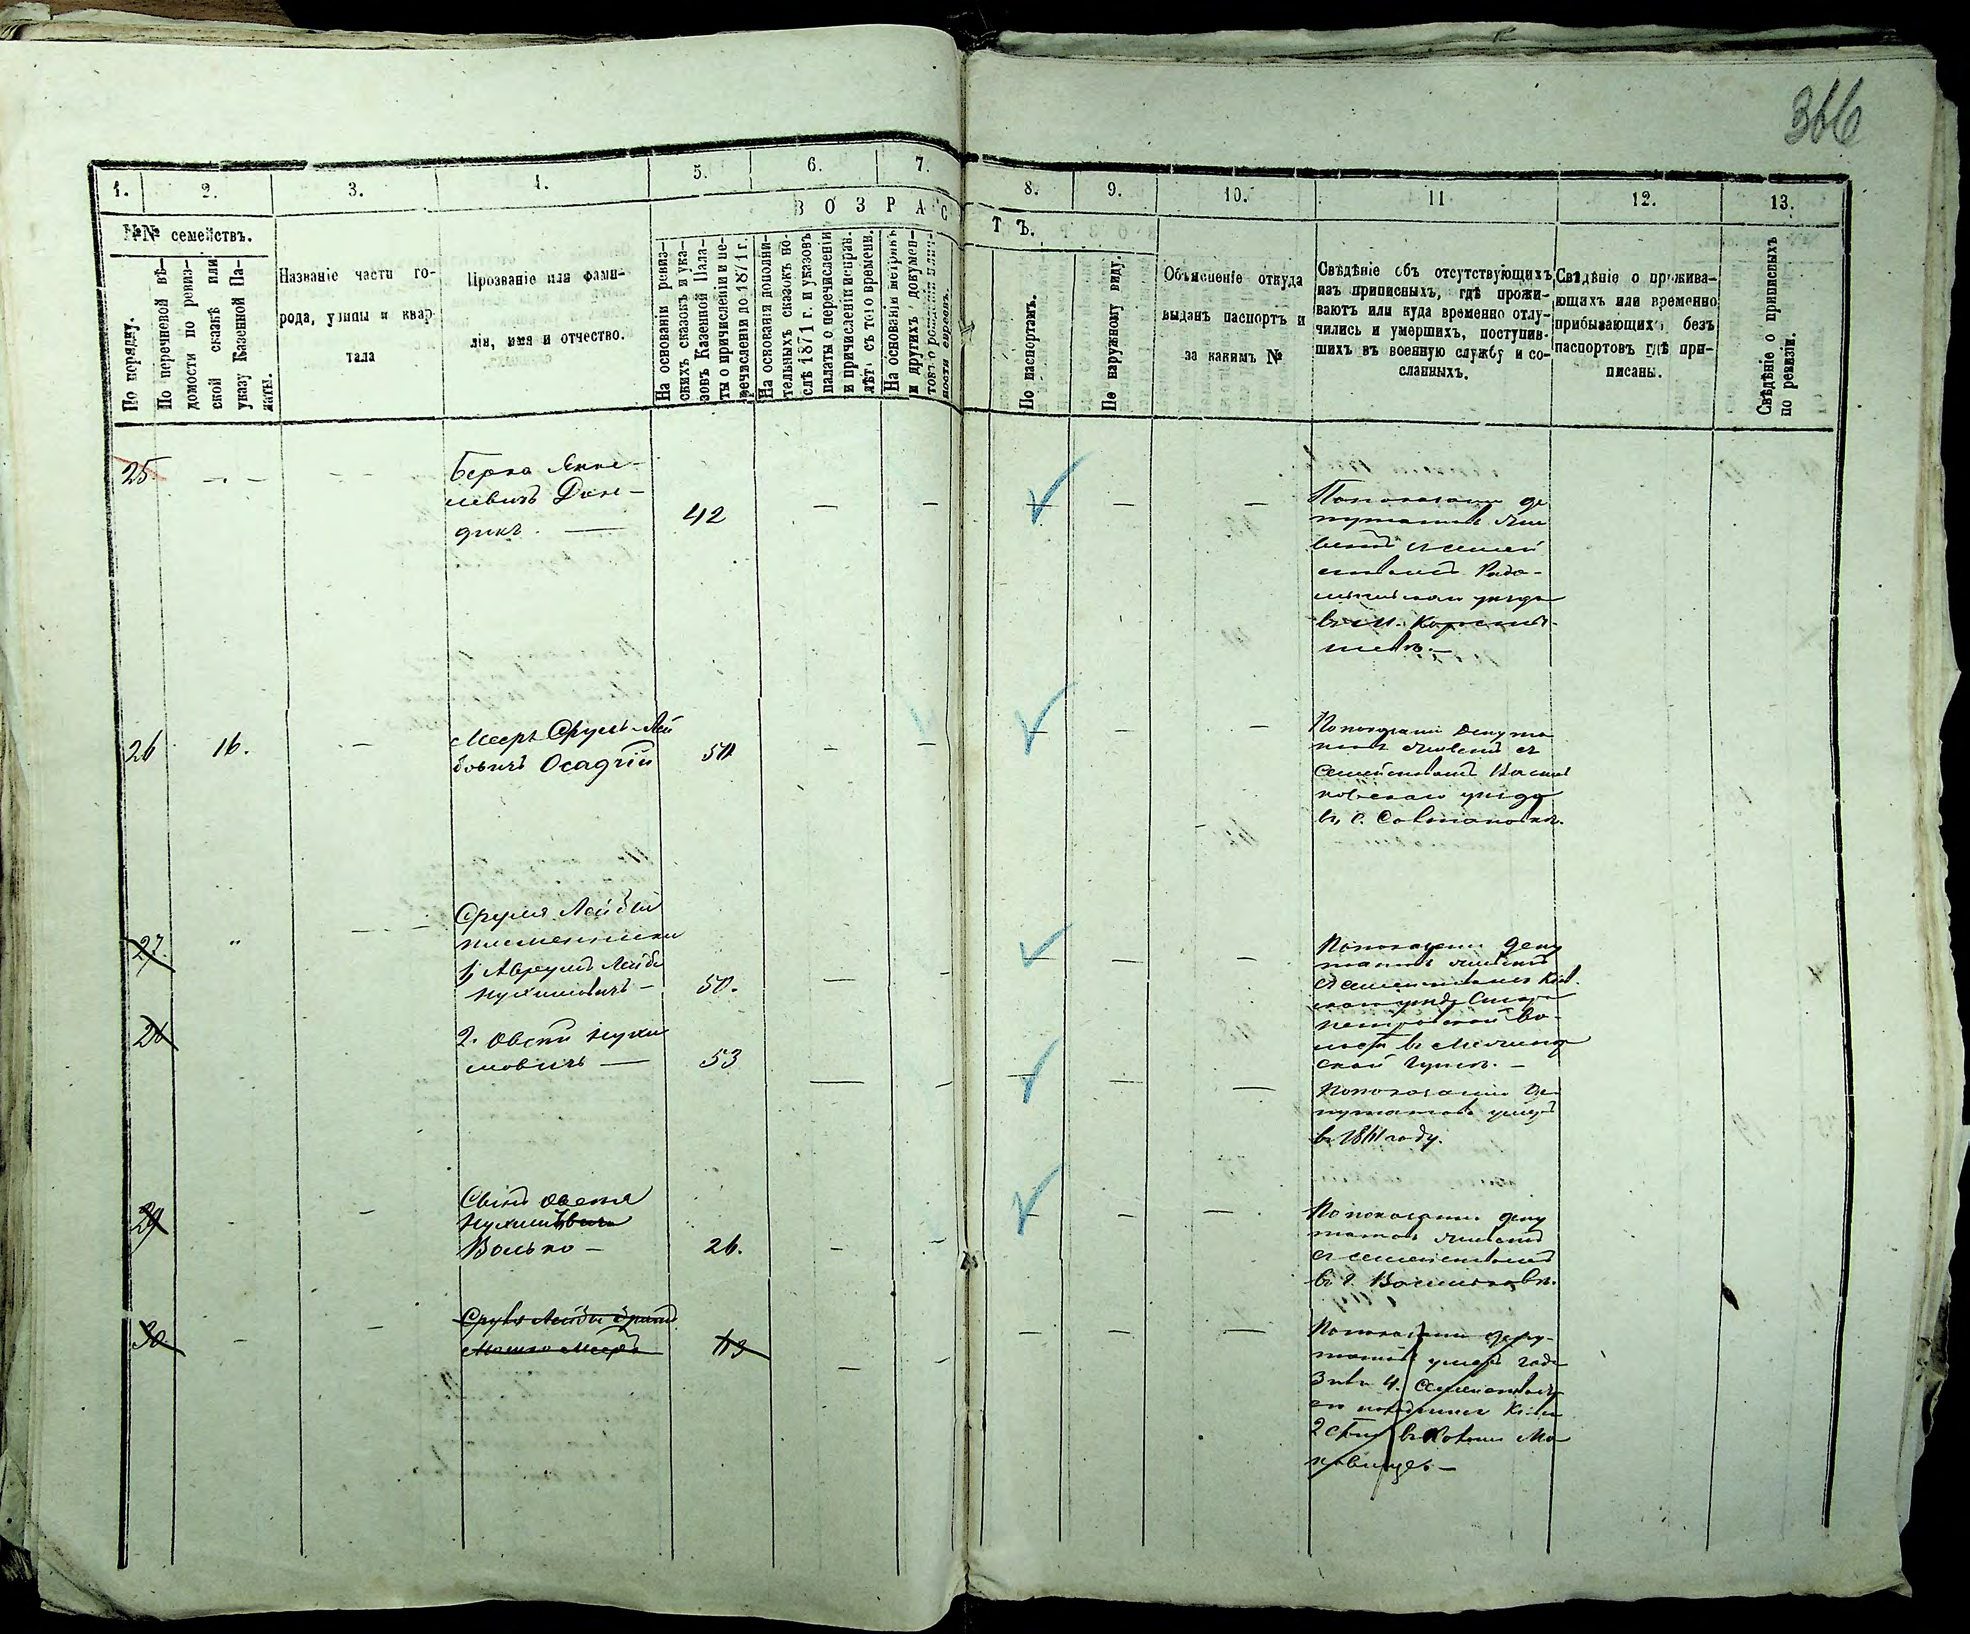 366
1.
2.
3.
4.
5.
6.
7.
8.
9.
10.
11
12.
13.
В О З Р А С
Т Ъ.
№№ семействъ.
По порядку.
По перечневой вѣ-
домости по ревиз-
ской сказкѣ или
указу Казенной Па-
латы.
Названіе части го-
рода, улицы и квар
тала
Прозваніе или фами-
лія, имя и отчество.
На основаніи ревиз-
скихъ сказокъ и ука-
зовъ Казенной Пала-
ты о причисленіи и пе-
речисленіи до 1871 г.
На основаніи дополни-
тельныхъ сказокъ по-
слѣ 1871 г. и указовъ
палаты о перечисленіи
и причисленіи исправ.
лѣт. съ того времени.
На основаніи метрикъ
и другихъ докумен-
товъ о рожденіи
ности евреевъ.
По паспортамъ.
По наружному виду.
Объясненіе откуда
выданъ паспортъ и
за какимъ №
Свѣдѣніе объ отсутствующихъ
изъ приписныхъ, гдѣ прожи-
ваютъ или куда временно отлу-
чились и умершихъ, поступив-
шихъ въ военную службу и со-
сланныхъ.
Свѣдѣніе о прожива-
ющихъ или временно
прибывающихъ безъ
паспортовъ гдѣ при-
писаны.
Свѣдѣніе о приписныхъ
по ревизіи.
25.
Берко Янке-
левичъ Дон-
дикъ.
42
По показанію де
путатовъ жи
ветъ съ семей
ствомъ Радо-
мысльскаго уѣзда
въ м.
26
16.
Мееръ Сруль-Лей
бовичъ Осадчій
50
По показанію депута
товъ живетъ съ
семействомъ Василь
ковскаго уѣзда
въ с.
27.
"
Сруля Лейбы
племенники
1, Аврумъ Лейба
Нухимовичъ
50.
По показанію депу
татовъ живетъ
съ семействомъ Кіев.
скаго уѣзда Старо
петровской во-
лости въ
28
2. Овсей Нухи
мовичъ
53
По показанію де
путатовъ умеръ
въ году.
29
Сынъ Овсея
Нухимовича
Волько
26.
По показанію депу
татовъ живетъ
съ семействомъ
въ г. Васильковѣ.
30.
Сруля Лейбы братъ
Мошко Мееръ
По показанію депу-
татовъ умеръ года